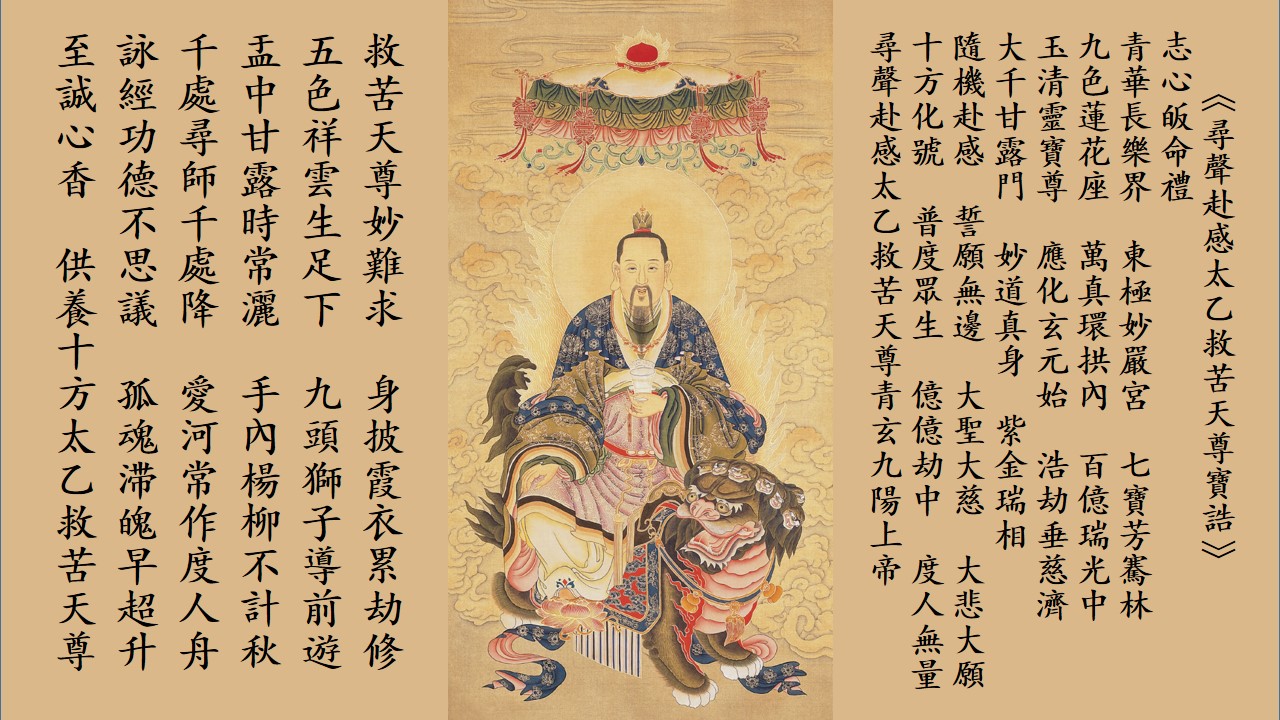 《尋聲赴感太乙救苦天尊寶誥》
志心皈命禮
青華長樂界　東極妙嚴宮　七寶芳騫林
九色蓮花座　萬真環拱內　百億瑞光中
玉清靈寶尊　應化玄元始　浩劫垂慈濟
大千甘露門　妙道真身　紫金瑞相
隨機赴感　誓願無邊　大聖大慈　大悲大願
十方化號　普度眾生　億億劫中　度人無量
尋聲赴感太乙救苦天尊青玄九陽上帝
救苦天尊妙難求　身披霞衣累劫修
五色祥雲生足下　九頭獅子導前遊
盂中甘露時常灑　手內楊柳不計秋
千處尋師千處降　愛河常作度人舟
詠經功德不思議　孤魂滯魄早超升
至誠心香　供養十方太乙救苦天尊